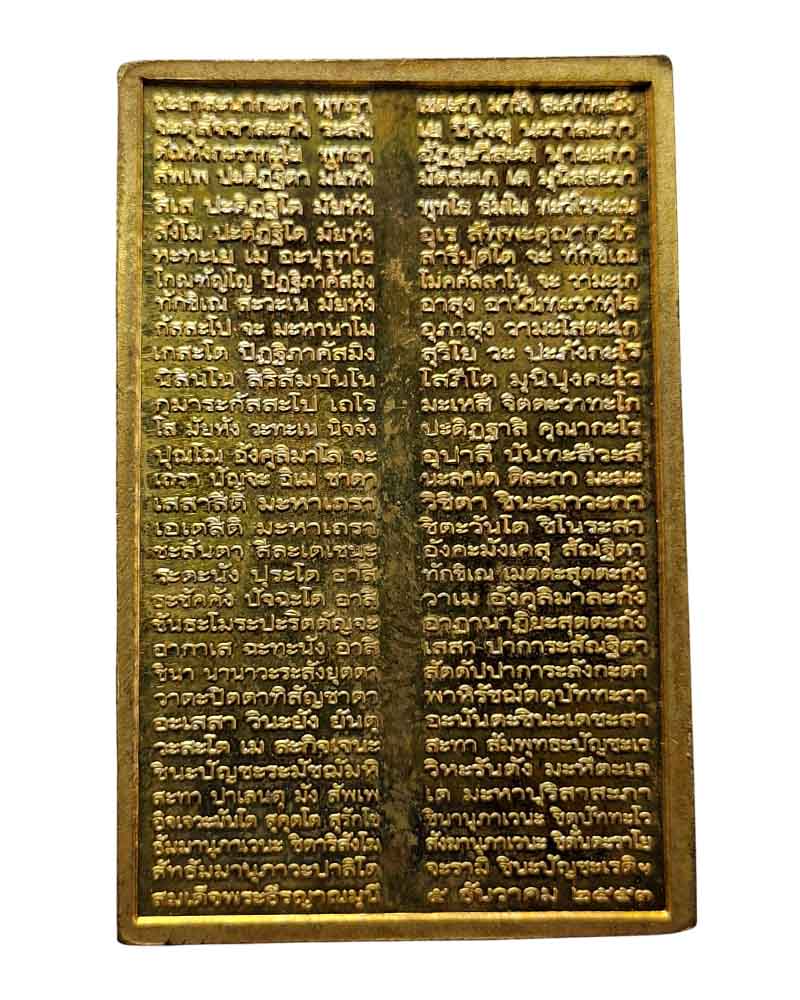 ชะยาสะนากะตา พุทธา เชตะวา มารัง สะวาหะนัง
จะตุสัจจาสะภัง ระสัง เย ปิวิงสุ นะราสะภา
ตัณหังกะราทะโย พุทธา อัฏฐะวีสะติ นายะกา
สัพเพ ปะติฏฐิตา มัยหัง มัตถะเก เต มุนิสสะรา
สีเส ปะติฏฐิโต มัยหัง พุทโธ ธัมโม ทะวิโลจะเน
สังโฆ ปะติฏฐิโต มัยหัง อุเร สัพพะคุณากะโร
หะทะเย เม อะนุรุทโธ สารีปุตโต จะ ทักขิเณ
โกณฑัญโญ ปิฏฐิภาคัสมิง โมคคัลลาโน จะ วามะเก
ทักขิเณ สะวะเน มัยหัง อาสุง อานันทะราหุโล
กัสสะโป จะ มะหานาโม อุภาสุง วามะโสตะเก
เกสะโต ปิฏฐิภาคัสมิง สุริโย วะ ปะภังกะโร
นิสินโน สิริสัมปันโน โสภิโต มุนิปุงคะโว
กุมาระกัสสะโป เถโร มะเหสี จิตตะวาทะโก
โส มัยหัง วะทะเน นิจจัง ปะติฏฐาสิ คุณากะโร
ปุณโณ อังคุลิมาโล จะ อุปาลี นันทะสีวะลี
เถรา ปัญจะ อิเม ชาตา นะลาเต ติละกา มะมะ
เสสาสีติ มะหาเถรา วิชิตา ชินะสาวะกา
เอเตสีติ มะหาเถรา ชิตะวันโต ชิโนระสา
ชะลันตา สีละเตเชนะ อังคะมังเคสุ สัณฐิตา
ระตะนัง ปุระโต อาสิ ทักขิเณ เมตตะสุตตะกัง
ธะชัคคัง ปัจฉะโต อาสิ วาเม อังคุลิมาละกัง
ขันธะโมระปะริตตัญจะ อาฏานาฏิยะสุตตะกัง
อากาเส ฉะทะนัง อาสิ เสสา ปาการะสัณฐิตา
ชินา นานาวะระสังยุตตา สัตตัปปาการะลังกะตา
วาตะปิตตาทิสัญชาตา พาหิรัชฌัตตุปัททะวา
อะเสสา วินะยัง ยันตุ อะนันตะชินะเตชะสา
วะสะโต เม สะกิจเจนะ สะทา สัมพุทธะปัญชะเร
ชินะปัญชะระมัชฌัมหิ วิหะรันตัง มะหีตะเล
สะทา ปาเลนตุ มัง สัพเพ เต มะหาปุริสาสะภา
อิจเจวะมันโต สุคุตโต สุรักโข ชินานุภาเวนะ ชิตุปัททะโว
ธัมมานุภาเวนะ ชิตาริสังโฆ สังฆานุภาเวนะ ชิตันตะราโย
สัทธัมมานุภาวะปาลิโต จะรามิ ชินะปัญชะเรติฯ
สมเด็จพระธีรญาณมุนี ๕ ธันวาคม ๒๕๕๓